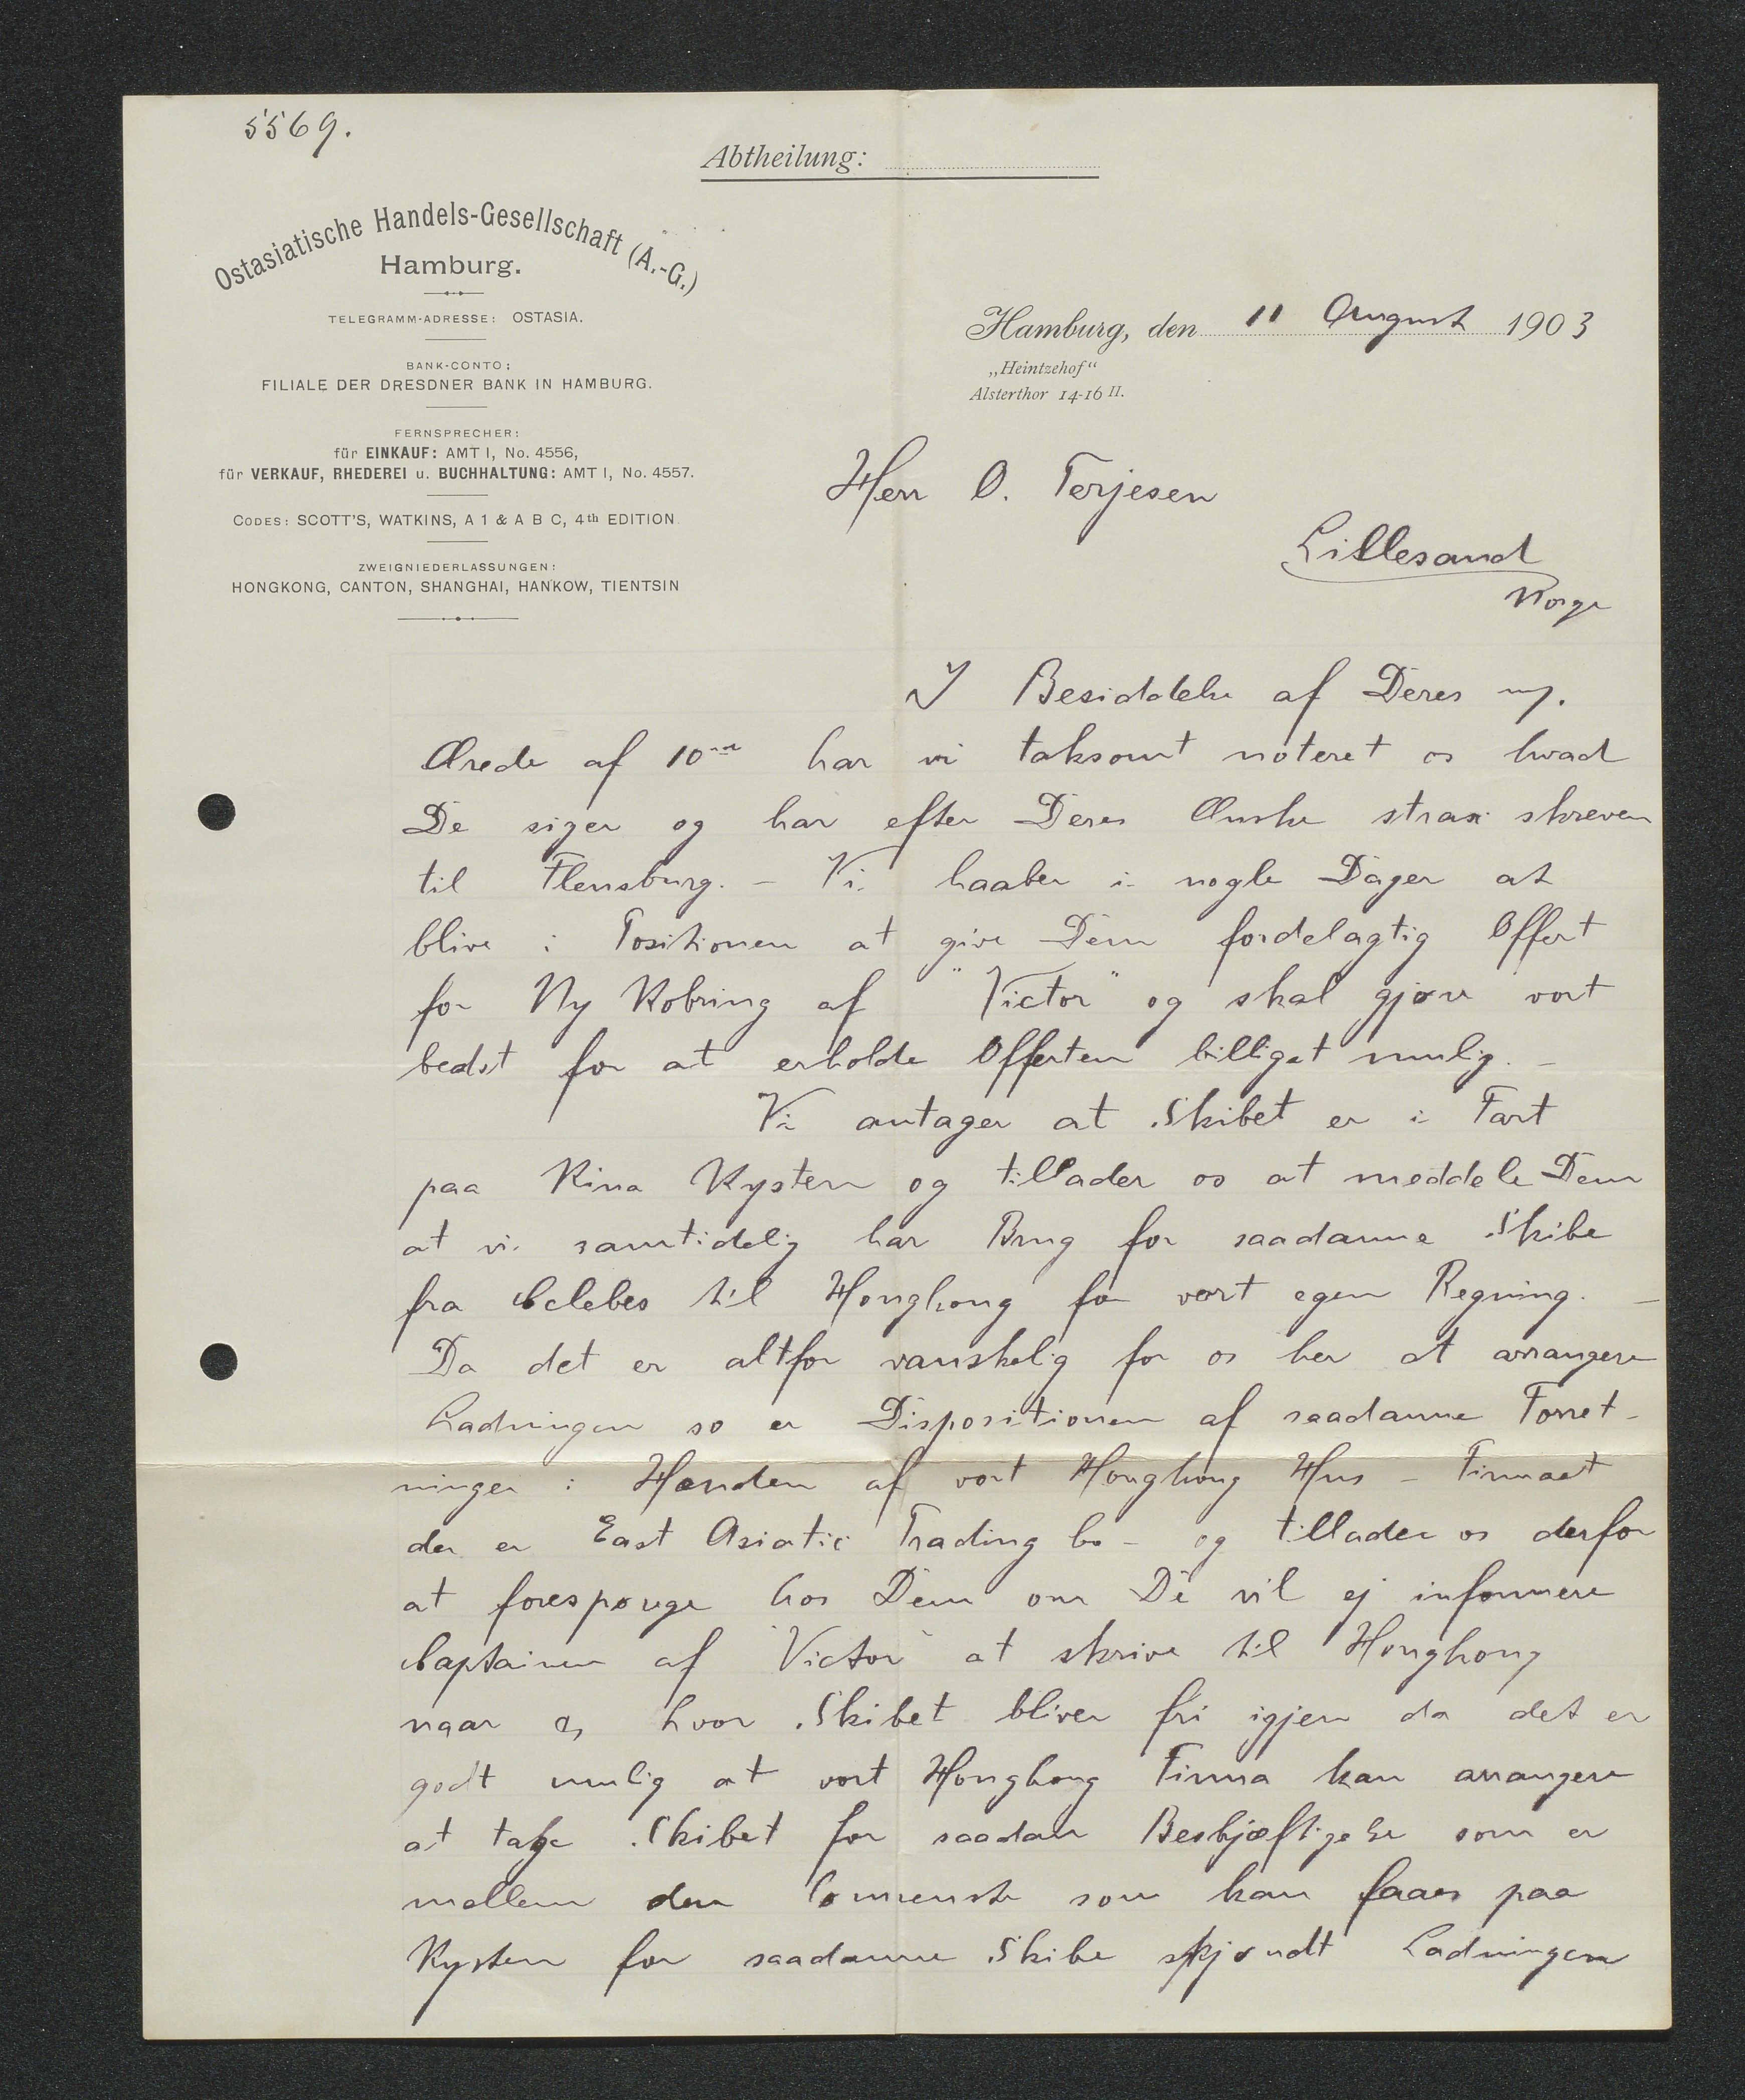 5569.
Abtheilung:
Ostasiatische Handels-Gesellschaft (A.-G.)
Hamburg.
TELEGRAMM-ADRESSE: OSTASIA.
BANK-CONTO:
FILIALE DER DRESDNER BANK IN HAMBURG.
FERNSPRECHER:
für EINKAUF: AMT I, No. 4556,
für VERKAUF, RHEDEREI u. BUCHHALTUNG: AMT I, No. 4557.
CODES: SCOTT'S, WATKINS, A 1 & A B C, 4th EDITION
ZWEIGNIEDERLASSUNGEN:
HONGKONG, CANTON, SHANGHAI, HANKOW, TIENTSIN
Hamburg, den 11 August 1903
„Heintzehof“
Alsterthor 14-16 II.
Herr O. Terjesen
Lillesand
Norge
I Besiddelse af Deres
Ærede af 10de har vi taksomt noteret os hvad
De siger og har efter Deres Ønske strax skreven
til Flensburg. – Vi haaber i nogle Dager at
blive i Positionen at give Dem fordelagtig Offert
for Ny Kobring af "Victor" og skal gjøre vort
bedst for at erholde Offerten billigst mulig. –
Vi antager at Skibet er i Fart
paa Kina Kysten og tillader os at meddele Dem
at vi samtidelig har Brug for saadanne Skibe
fra Celebes til Hongkong for vort egen Regning. –
Da det er altfor vanskelig for os her at arrangere
Ladningen so er Dispositionen af saadanne Forret-
ninger i Hænden af vort Hongkong Hus – Firmaet
der er East Asiatic Trading Co – og tillader os derfor
at forespørge hos Dem om De vil ej informere
Captainen af "Victor" at skrive til Hongkong
naar og hvor Skibet bliver fri igjen da det er
godt mulig at vort Hongkong Firma kan arrangere
at tage Skibet for saadan Beskjæftigelse som er
mellem den lønnenste som kan faaes paa
Kysten for saadanne Skibe skjøndt Ladningen